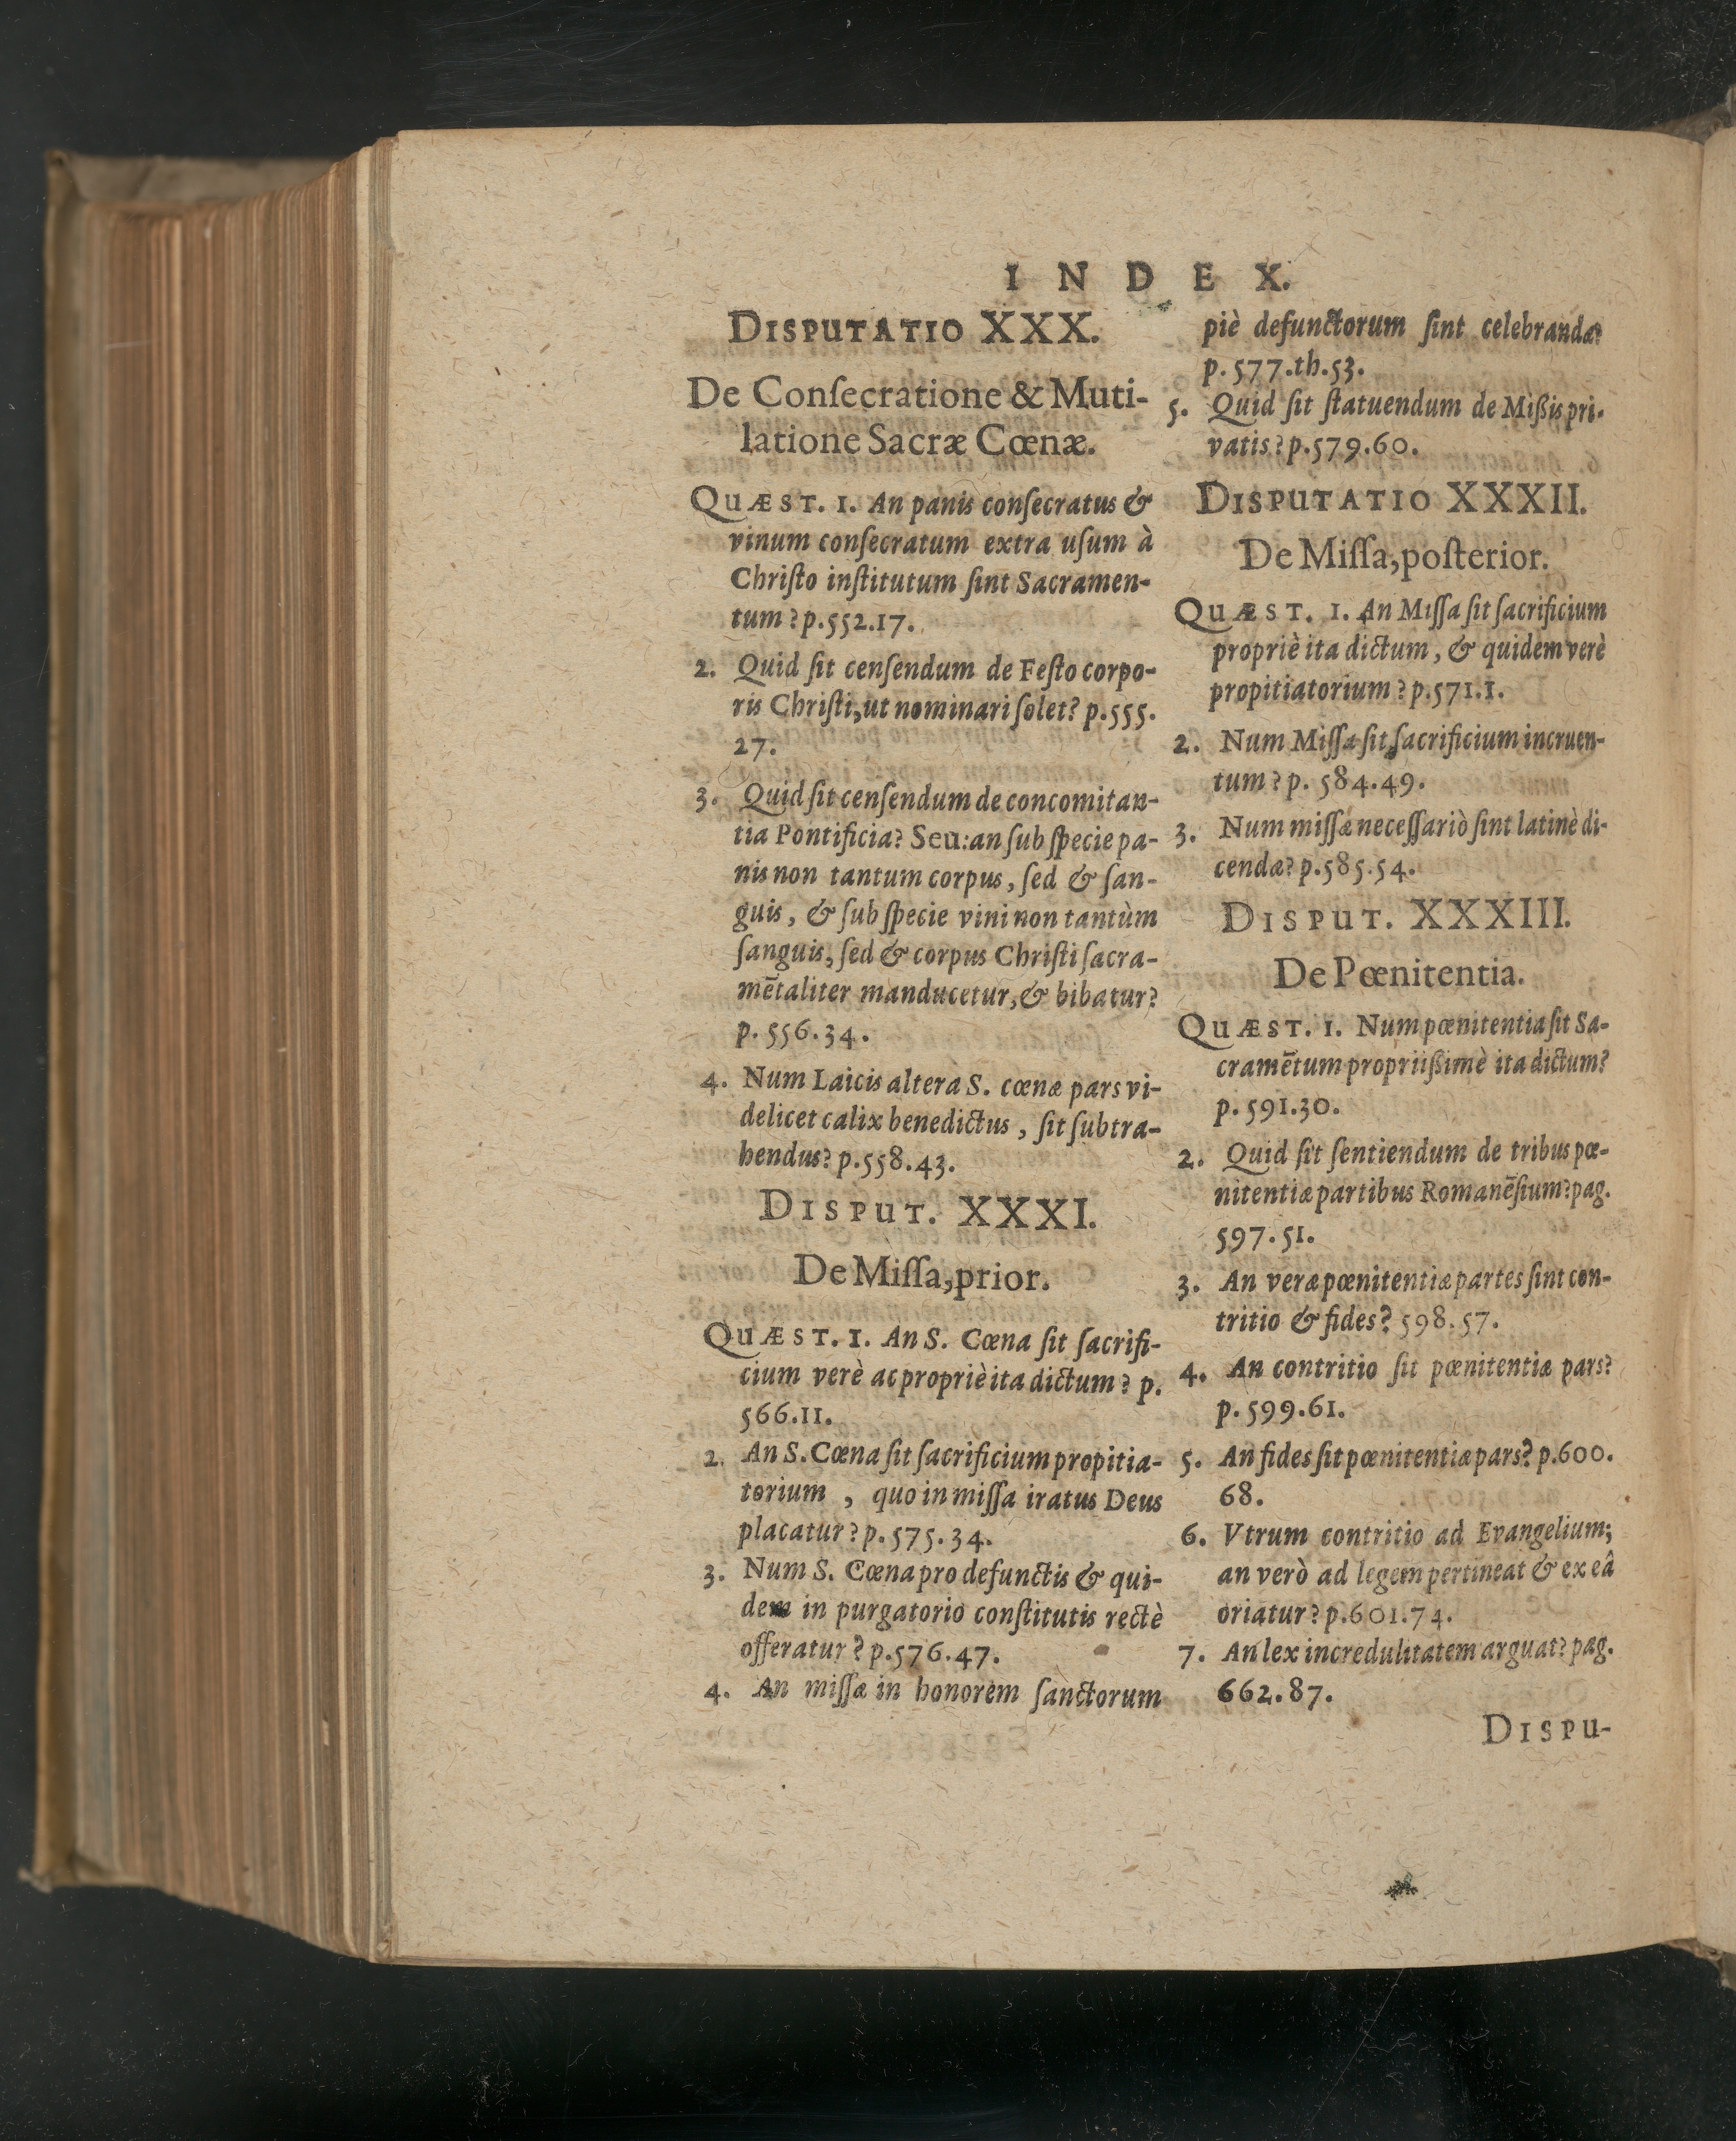 INDEX.
DISPUTATIO XXX.
De Conſecratione & Muti-
latione Sacræ Cœnæ.
QUÆST. 1. An panis conſecratus &
vinum conſecratum extra uſum à
Chriſto inſtitutum ſint Sacramen-
tum? p.552.17.
2. Quid ſit cenſendum de Feſto corpo-
ris Chriſti, ut nominari ſolet? p.555.
27.
3. Quid ſit cenſendum de concomitan-
tia Pontificia? Seu: an ſub ſpecie pa-
nis non tantum corpus, ſed & ſan-
guis, & ſub ſpecie vini non tantùm
ſanguis, ſed & corpus Chriſti ſacra-
mētaliter manducetur, & bibatur?
p. 556.34.
4. Num Laicis altera S. cœnæ pars vi-
delicet calix benedictus, ſit ſubtra-
hendus? p.558.43.
DISPUT. XXXI.
De Miſſa, prior.
QUÆST. 1. An S. Cœna ſit ſacrifi-
cium verè ac propriè ita dictum? p.
566.11.
2. An S. Cœna ſit ſacrificium propitia-
torium, quo in miſſa iratus Deus
placatur? p.575.34.
3. Num S. Cœna pro defunctis & qui-
dem in purgatorio conſtitutis rectè
offeratur? p.576.47.
4. An miſſæ in honorem ſanctorum
piè defunctorum ſint celebrandæ?
p. 577.th.53.
5. Quid ſit ſtatuendum de Mißis pri-
vatis? p.579.60.
DISPUTATIO XXXII.
De Miſſa, poſterior.
QUÆST. 1. An Miſſa ſit ſacrificium
propriè ita dictum, & quidem verè
propitiatorium? p.571.1.
2. Num Miſſa ſit ſacrificium incruen-
tum? p. 584.49.
3. Num miſſæ neceſſariò ſint latinè di-
cendæ? p.585.54.
DISPUT. XXXIII.
De Pœnitentia.
QUÆST. 1. Num pœnitentia ſit Sa-
cramētum propriißimè ita dictum?
p. 591.30.
2. Quid ſit ſentiendum de tribus pœ-
nitentiæ partibus Romanēſium? pag.
597.51.
3. An veræ pœnitentiæ partes ſint con-
tritio & fides? 598.57.
4. An contritio ſit pœnitentiæ pars?
p. 599.61.
5. An fides ſit pœnitentiæ pars? p.600.
68.
6. Vtrum contritio ad Evangelium;
an verò ad legem pertineat & ex eâ
oriatur? p.601.74.
7. An lex incredulitatem arguat? pag.
662.87.
DISPU-